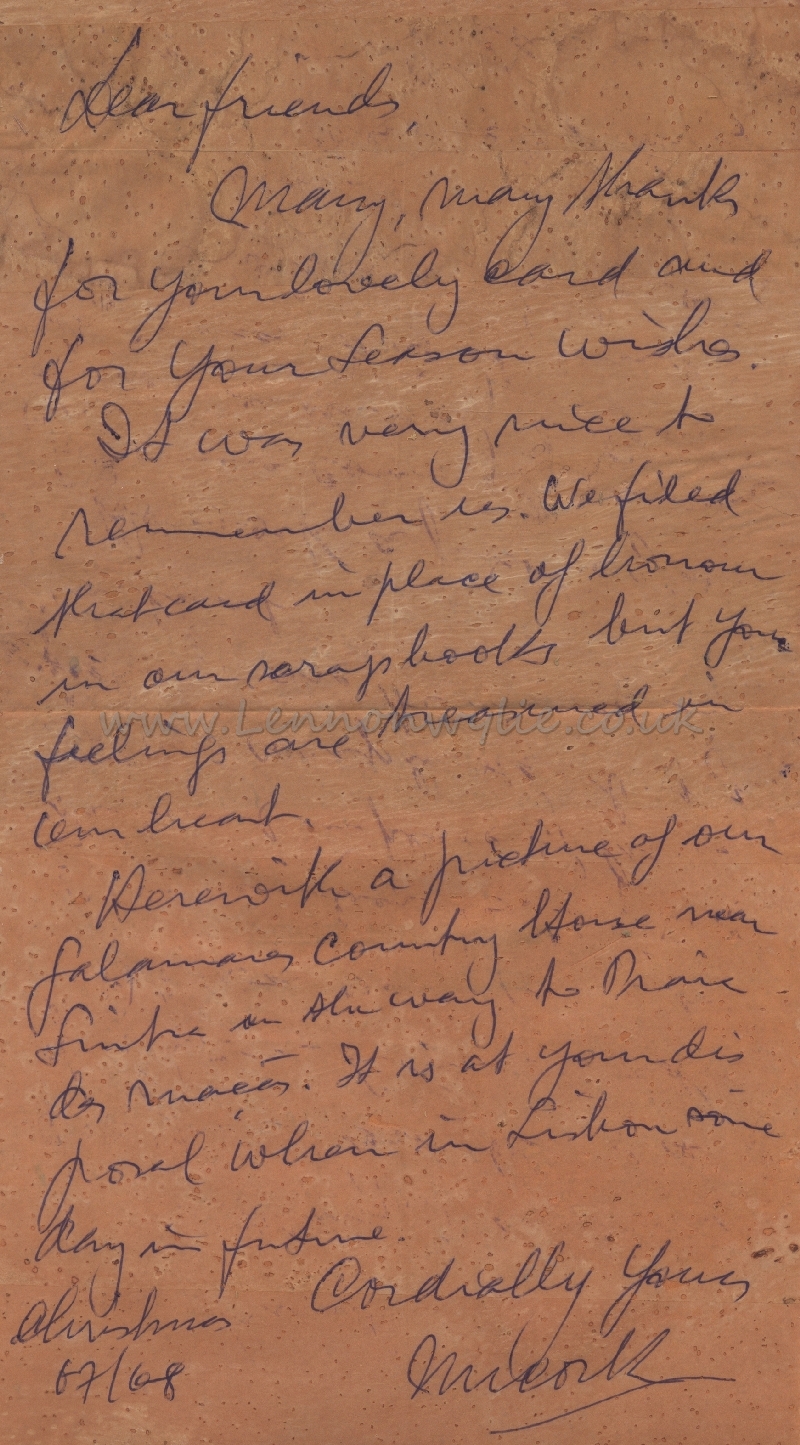 Dear friends,
Many, many thanks
for your lovely card and
for your Season wishes.
It was very nice to
remember us. We filed
that card in place of honour
in our scrapbooks but your
feelings are treasured in
www.Lennonwylie.co.uk
our heart.
Herewith a picture of our
Galamares Country House near
Sintra on the way to Praia
das Maçãs. It is at your dis
posal when in Lisbon some
day in future.
Cordially Yours
Christmas
67/68